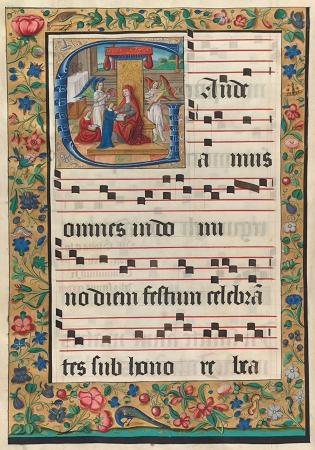 Gaude
amus
omnes in do mi
no diem festum celebrā
tes sub hono re bea